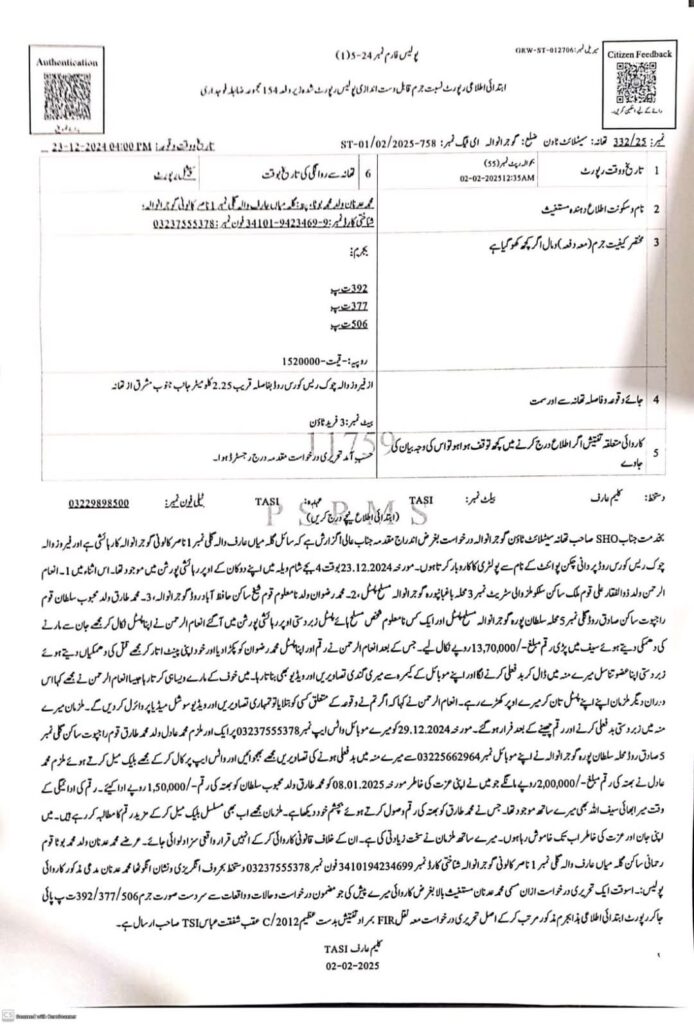 سیریل نمبر: GRW-ST-012706
پولیس فارم نمبر 24-5(1)
Authentication
Citizen Feedback
رائے کے لیے سکین کریں۔
ابتدائی اطلاعی رپورٹ نسبت جرم قابل دست اندازی پولیس رپورٹ شدہ زیر دفعہ 154 مجموعہ ضابطہ فوجداری
نمبر: 332/25 تھانہ: سیٹلائٹ ٹاؤن ضلع: گوجرانوالہ ای ٹیگ نمبر: ST-01/02/2025-758 تاریخ و وقت وقوعہ: 23-12-2024 04:00 PM
1 تاریخ و وقت رپورٹ بحوالہ رپٹ نمبر (55) 02-02-2025 12:35AM 6 تھانہ سے روانگی کی تاریخ و وقت رپورٹ
2 نام و سکونت اطلاع دہندہ مستغیث محمد عدنان ولد محمد بوٹا، پتہ: محلہ میاں عارف والہ گلی نمبر 1 ناصر کالونی گوجرانوالہ،
شناختی کارڈ: 34101-9423469-9 فون نمبر: 03237555378
3 مختصر کیفیت جرم (معہ دفعہ) و مال اگر کچھ کھو گیا ہے
بجرم:
392 ت پ
377 ت پ
506 ت پ
روپیہ:- قیمت-1520000
4 جائے وقوعہ و فاصلہ تھانہ سے اور سمت از فیروز والہ چوک ریس کورس روڈ بفاصلہ قریب 2.25 کلومیٹر جانب جنوب مشرق از تھانہ
بیٹ نمبر: 3 فرید ٹاؤن
5 کاروائی متعلقہ تفتیش اگر اطلاع درج کرنے میں کچھ توقف ہوا ہو تو اس کی وجہ بیان کی جاوے حسب آمد تحریری درخواست مقدمہ درج رجسٹر ہوا۔
11759
دستخط: کلیم عارف بیلٹ نمبر: TASI عہدہ: TASI ٹیلی فون نمبر: 03229898500
PSRMS
(ابتدائی اطلاع نیچے درج کریں)
بخدمت جناب SHO صاحب تھانہ سیٹلائٹ ٹاؤن گوجرانوالہ درخواست بغرض اندراج مقدمہ جناب عالی! گزارش ہے کہ سائل محلہ میاں عارف والہ گلی نمبر 1 ناصر کالونی گوجرانوالہ کا رہائشی ہے اور فیروز والہ
چوک ریس کورس روڈ پر وانی چکن پوائنٹ کے نام سے پولٹری کا کاروبار کرتا ہوں۔ مورخہ 23.12.2024 بوقت 4 بجے شام ویلہ میں اپنے دوکان کے اوپر رہائشی پورشن میں موجود تھا۔ اس اثناء میں 1۔ انعام
الرحمن ولد ذوالفقار علی قوم ملک ساکن سکلر موالی سٹریٹ نمبر 3 محلہ باغبانپورہ گوجرانوالہ مسلح پسٹل، 2۔ محمد رضوان ولد نامعلوم قوم شیخ ساکن حافظ آباد روڈ گوجرانوالہ، 3۔ محمد طارق ولد محبوب سلطان قوم
راجپوت ساکن صادق روڈ گلی نمبر 5 محلہ سلطان پورہ گوجرانوالہ مسلح پسٹل اور ایک کس نامعلوم شخص مسلح ہائے پسٹل زبردستی اوپر رہائشی پورشن میں آ گئے انعام الرحمن نے اپنا پسٹل نکال کر مجھے جان سے مارنے
کی دھمکی دیتے ہوئے سیف میں پڑی رقم مبلغ-/13,70,000 روپے نکال لیے۔ جس کے بعد انعام الرحمن نے رقم اور اپنا پسٹل محمد رضوان کو پکڑا دیا اور خود اپنی پینٹ اتار کر مجھے قتل کی دھمکیاں دیتے ہوئے
زبردستی اپنا عضو تناسل میرے منہ میں ڈال کر بد فعلی کرنے لگا اور اپنے موبائل کے کیمرہ سے میری گندی تصاویریں اور ویڈیو بھی بناتا رہا۔ میں خوف کے مارے ویسا ہی کرتا رہا جیسا انعام الرحمن نے مجھے کہا اس
دوران دیگر ملزمان اپنے اپنے پسٹل تان کر میرے اوپر کھڑے رہے۔ انعام الرحمن نے کہا کہ اگر تم نے وقوعہ کے متعلق کسی کو بتلایا تو تمہاری تصاویریں اور ویڈیو سوشل میڈیا پر وائرل کر دیں گے۔ ملزمان میرے
منہ میں زبردستی بد فعلی کرنے اور رقم چھیننے کے بعد فرار ہو گئے۔ مورخہ 29.12.2024 کو میرے موبائل واٹس ایپ نمبر 03237555378 پر ایک اور ملزم محمد عادل ولد محمد طارق قوم راجپوت ساکن گلی نمبر
5 صادق روڈ محلہ سلطان پورہ گوجرانوالہ نے اپنے موبائل نمبر 03225662964 سے میرے منہ میں بد فعلی ہونے کی تصاویریں مجھے بھجوائیں اور واٹس ایپ پر کال کر کے مجھے بلیک میل کرتے ہوئے ملزم محمد
عادل نے بھتہ کی رقم مبلغ-/2,00,000 روپے مانگے جو میں نے اپنی عزت کی خاطر مورخہ 08.01.2025 کو محمد طارق ولد محبوب سلطان کو بھتہ کی رقم-/1,50,000 روپے ادا کیئے۔ رقم کی ادائیگی کے
وقت میرا بھائی سیف اللہ بھی میرے ساتھ موجود تھا۔ جس نے محمد طارق کو بھتہ کی رقم وصول کرتے ہوئے بچشم خود دیکھا ہے۔ ملزمان مجھے اب بھی مسلسل بلیک میل کر کے مزید رقم کا مطالبہ کر رہے ہیں۔ میں
اپنی جان اور عزت کی خاطر اب تک خاموش رہا ہوں۔ میرے ساتھ ملزمان نے سخت زیادتی کی ہے۔ ان کے خلاف قانونی کاروائی کر کے انہیں قرار واقعی سزا دلوائی جائے۔ عرضے محمد عدنان ولد محمد بوٹا قوم
رحمانی ساکن محلہ میاں عارف والہ گلی نمبر 1 ناصر کالونی گوجرانوالہ شناختی کارڈ نمبر 3410194234699 فون نمبر 03237555378 دستخط بحروف انگریزی و نشان انگوٹھا محمد عدنان مدعی مذکور کاروائی
پولیس:۔ اسوقت ایک تحریری درخواست ازان مسمی محمد عدنان مستغیث بالا بغرض کاروائی میرے پیش کی جو مضمون درخواست و حالات و واقعات سے سردست صورت جرم 392/377/506 ت پ پائی
جا کر رپورٹ ابتدائی اطلاعی ہذا بجرم مذکور مرتب کر کے اصل تحریری درخواست معہ نقل FIR بمراد تفتیش بدست عظیم 2012/C عقب شفقت عباس TSI صاحب ارسال ہے۔
کلیم عارف TASI
02-02-2025
CS Scanned with CamScanner